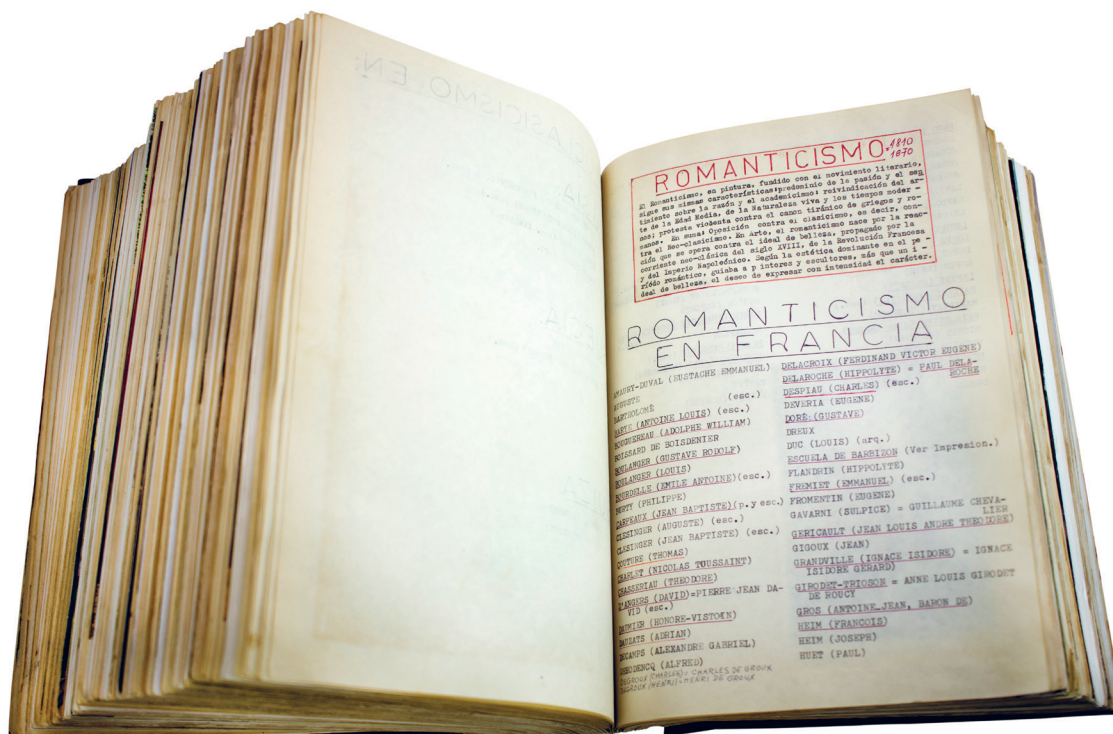 ROMANTICISMO 1810
1870
El Romanticismo, en pintura, fundido con el movimiento literario,
sigue sus mismas características: predominio de la pasión y el sen
timiento sobre la razón y el academicismo; reivindicación del ar-
te de la Edad Media, de la Naturaleza viva y los tiempos moder-
nos; protesta violenta contra el canon tiránico de griegos y ro-
manos. En suma: Oposición contra el clasicismo, es decir, con-
tra el Neo-clasicismo. En Arte, el romanticismo nace por la reac-
ción que se opera contra el ideal de belleza, propagado por la
corriente neo-clásica del siglo XVIII, de la Revolución Francesa
y del Imperio Napoleónico. Según la estética dominante en el pe-
ríódo romántico, guiaba a pintores y escultores, más que un i-
deal de belleza, el deseo de expresar con intensidad el carácter.
ROMANTICISMO
EN FRANCIA
AMAURY-DUVAL (EUSTACHE EMMANUEL)
AUGUSTE
BARTHOLOMÉ (esc.)
BARYE (ANTOINE LOUIS) (esc.)
BOUGUEREAU (ADOLPHE WILLIAM)
BOISSARD DE BOISDENIER
BOULANGER (GUSTAVE RODOLF)
BOULANGER (LOUIS)
BOURDELLE (EMILE ANTOINE)(esc.)
BURTY (PHILIPPE)
CARPEAUX (JEAN BAPTISTE)(p.y esc.)
CLESINGER (AUGUSTE) (esc.)
CLESINGER (JEAN BAPTISTE) (esc.)
COUTURE (THOMAS)
CHARLET (NICOLAS TOUSSAINT)
CHASSERIAU (THEODORE)
D'ANGERS (DAVID)=PIERRE JEAN DA-
VID (esc.)
DAUMIER (HONORE-VISTOIN)
DAUZATS (ADRIAN)
DECAMPS (ALEXANDRE GABRIEL)
DEHODENCQ (ALFRED)
DEGROUX (CHARLES)= CHARLES DE GROUX
DEGROUX (HENRI)= HENRI DE GROUX
DELACROIX (FERDINAND VICTOR EUGENE)
DELAROCHE (HIPPOLYTE) = PAUL DELA-
ROCHE
DESPIAU (CHARLES) (esc.)
DEVERIA (EUGENE)
DORÉ (GUSTAVE)
DREUX
DUC (LOUIS) (arq.)
ESCUELA DE BARBIZON (Ver Impresion.)
FLANDRIN (HIPPOLYTE)
FREMIET (EMMANUEL) (esc.)
FROMENTIN (EUGENE)
GAVARNI (SULPICE) = GUILLAUME CHEVA-
LIER
GERICAULT (JEAN LOUIS ANDRE THEODORE)
GIGOUX (JEAN)
GRANDVILLE (IGNACE ISIDORE) = IGNACE
ISIDORE GERARD)
GIRODET-TRIOSON = ANNE LOUIS GIRODET
DE ROUCY
GROS (ANTOINE JEAN, BARON DE)
HEIM (FRANCOIS)
HEIM (JOSEPH)
HUET (PAUL)